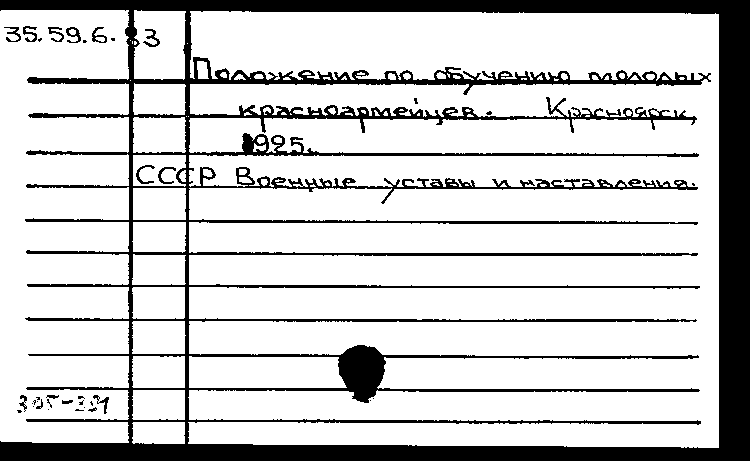 35.59.6.83
Положение по обучению молодых
красноармейцев. Красноярск,
1925.
СССР Военные уставы и наставления.
305-391